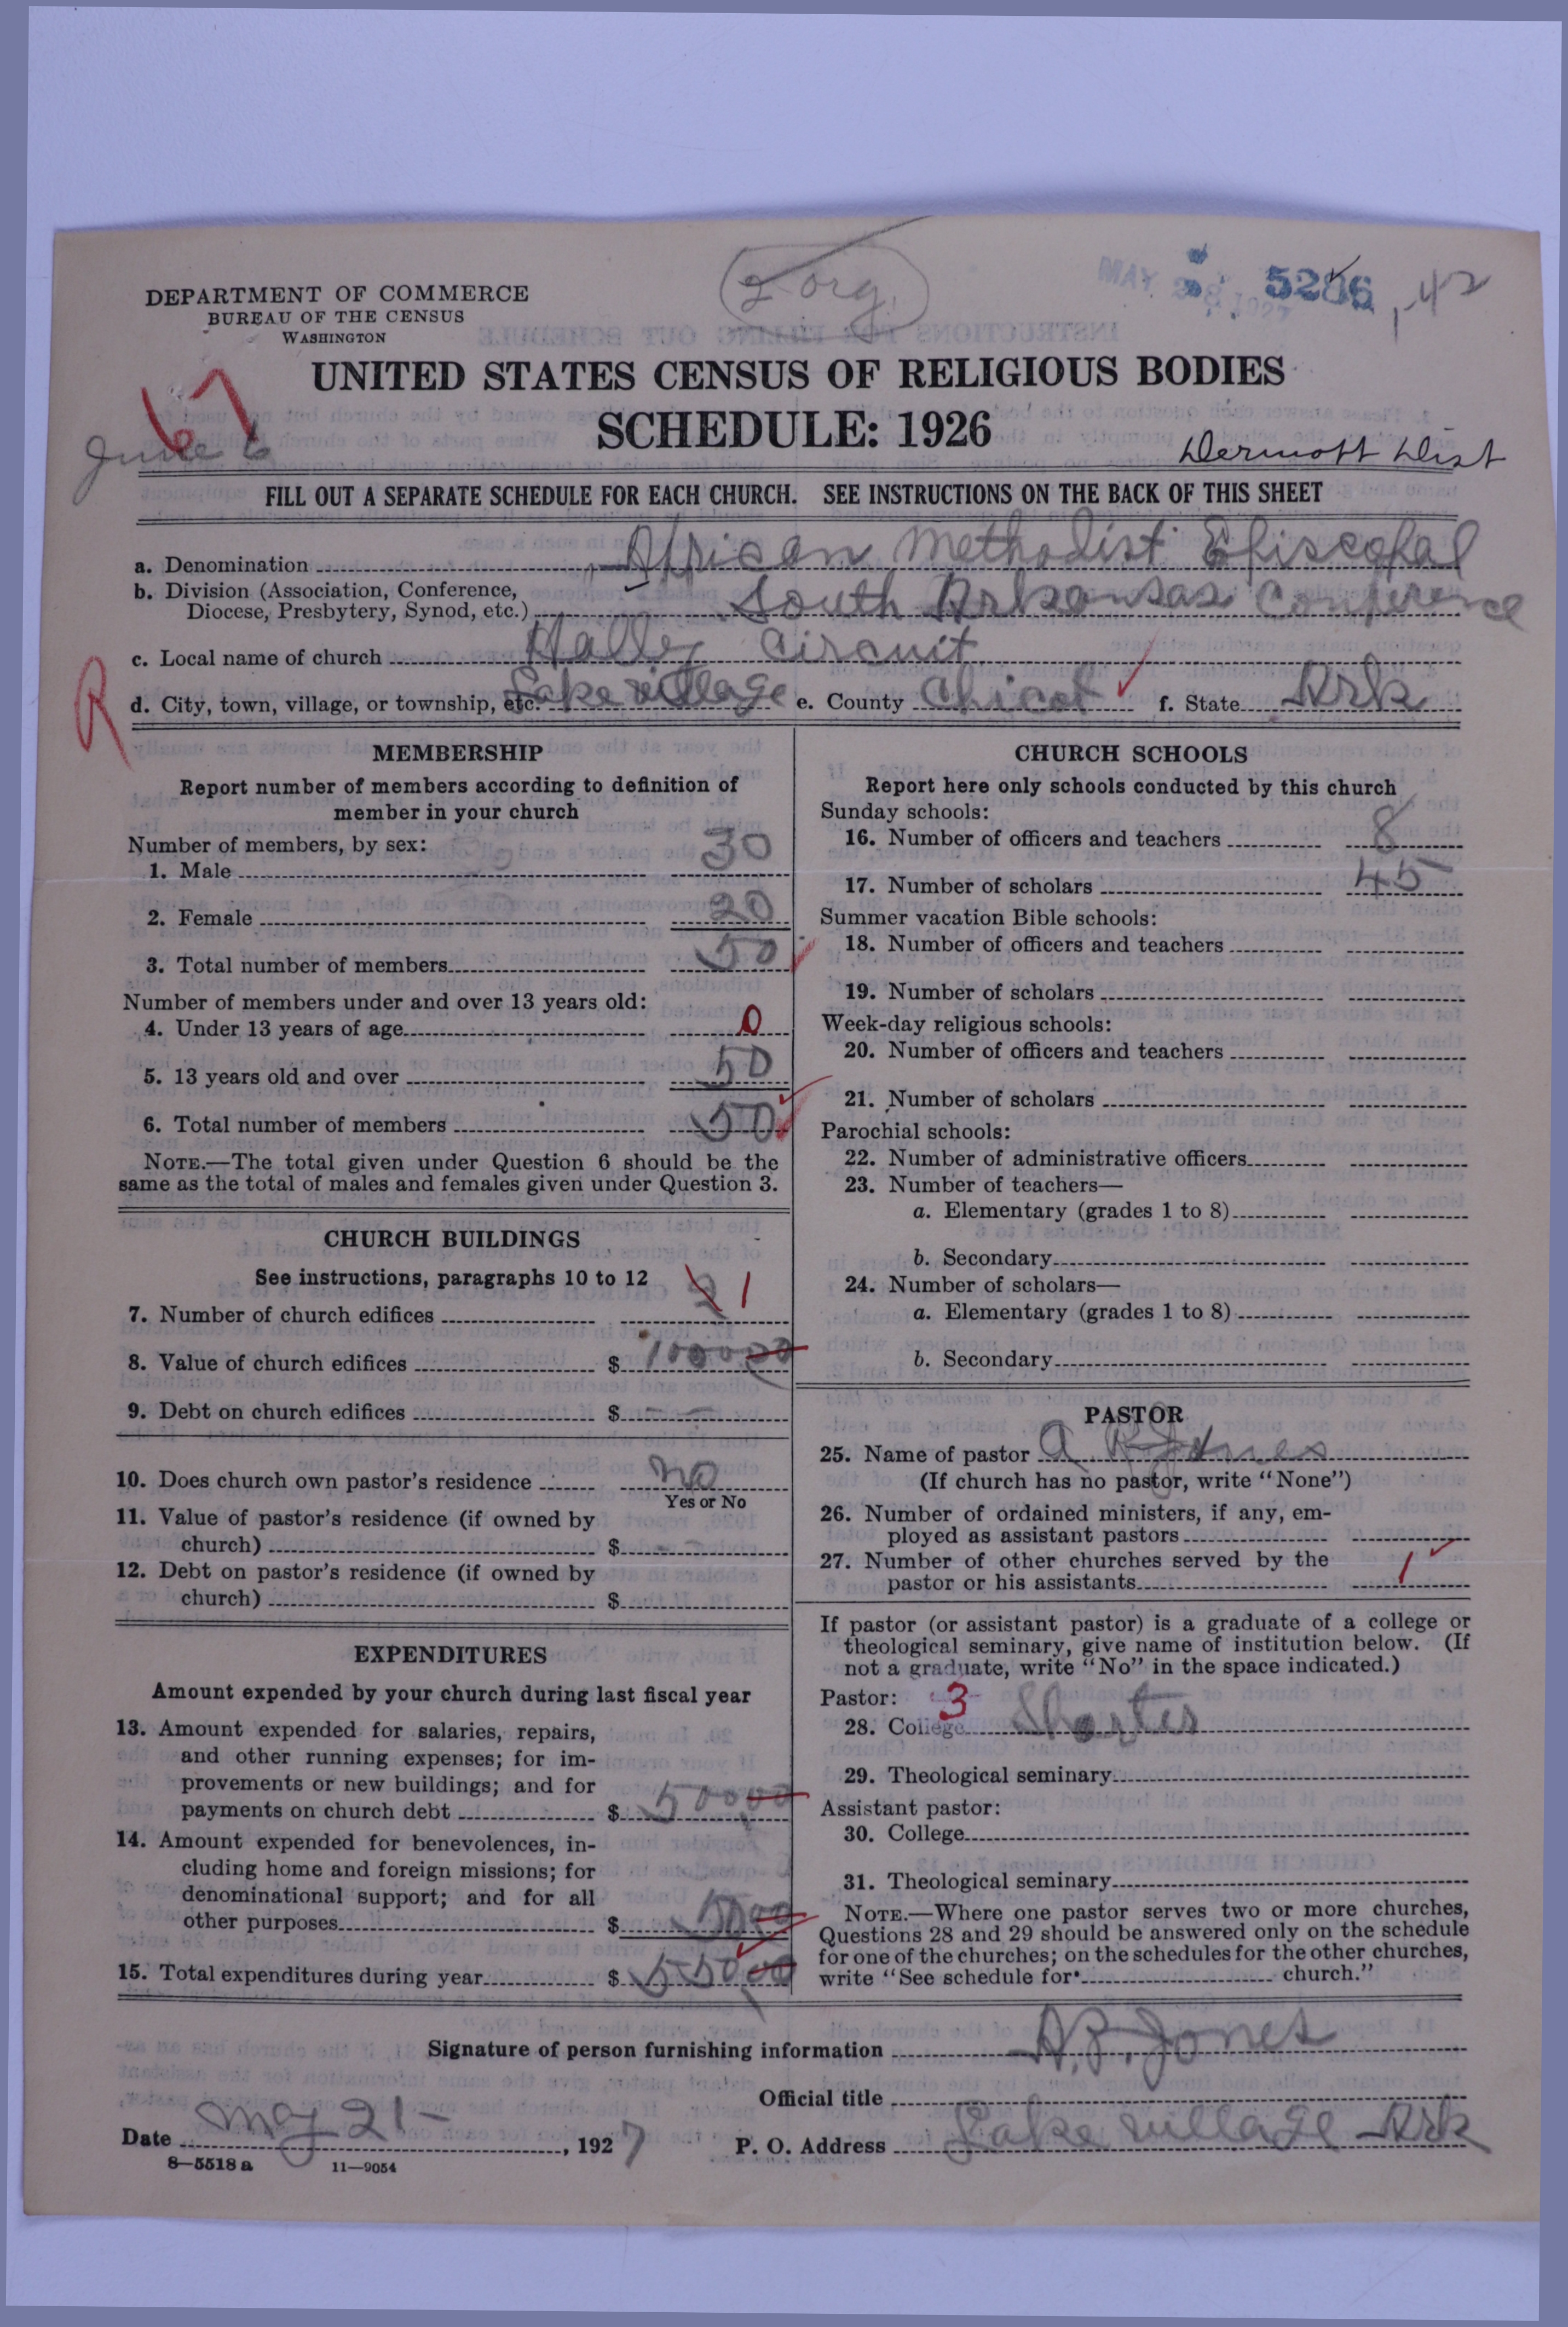 2 org.
MAY 28 1927 5286 1-42
DEPARTMENT OF COMMERCE
BUREAU OF THE CENSUS
WASHINGTON
UNITED STATES CENSUS OF RELIGIOUS BODIES
SCHEDULE: 1926
67
June 6
Dermott Dist
FILL OUT A SEPARATE SCHEDULE FOR EACH CHURCH. SEE INSTRUCTIONS ON THE BACK OF THIS SHEET
a. Denomination African Methodist Episcopal
b. Division (Association, Conference,
Diocese, Presbytery, Synod, etc.) South Arkansas Conference
c. Local name of church Halley Circuit
R
d. City, town, village, or township, etc. Lake village e. County Chicot f. State Ark
MEMBERSHIP
Report number of members according to definition of
member in your church
Number of members, by sex:
1. Male 30
2. Female 20
3. Total number of members 50
Number of members under and over 13 years old:
4. Under 13 years of age 0
5. 13 years old and over 50
6. Total number of members 50
NOTE.—The total given under Question 6 should be the
same as the total of males and females given under Question 3.
CHURCH BUILDINGS
See instructions, paragraphs 10 to 12
7. Number of church edifices 2 1
8. Value of church edifices $ 1000 00
9. Debt on church edifices $ - -
10. Does church own pastor's residence No
Yes or No
11. Value of pastor's residence (if owned by
church) $
12. Debt on pastor's residence (if owned by
church) $
EXPENDITURES
Amount expended by your church during last fiscal year
13. Amount expended for salaries, repairs,
and other running expenses; for im-
provements or new buildings; and for
payments on church debt $ 500.00
14. Amount expended for benevolences, in-
cluding home and foreign missions; for
denominational support; and for all
other purposes $ 50 00
15. Total expenditures during year $ 550.00
CHURCH SCHOOLS
Report here only schools conducted by this church
Sunday schools:
16. Number of officers and teachers 8
17. Number of scholars 45
Summer vacation Bible schools:
18. Number of officers and teachers
19. Number of scholars
Week-day religious schools:
20. Number of officers and teachers
21. Number of scholars
Parochial schools:
22. Number of administrative officers
23. Number of teachers—
a. Elementary (grades 1 to 8)
b. Secondary
24. Number of scholars—
a. Elementary (grades 1 to 8)
b. Secondary
PASTOR
25. Name of pastor A R Jones
(If church has no pastor, write "None")
26. Number of ordained ministers, if any, em-
ployed as assistant pastors
27. Number of other churches served by the
pastor or his assistants 1
If pastor (or assistant pastor) is a graduate of a college or
theological seminary, give name of institution below. (If
not a graduate, write "No" in the space indicated.)
Pastor: 3
28. College Shorter
29. Theological seminary
Assistant pastor:
30. College
31. Theological seminary
NOTE.—Where one pastor serves two or more churches,
Questions 28 and 29 should be answered only on the schedule
for one of the churches; on the schedules for the other churches,
write "See schedule for church."
Signature of person furnishing information A. R. Jones
Official title
Date May 21-, 1927 P. O. Address Lake village Ark
8—5518 a 11—9054